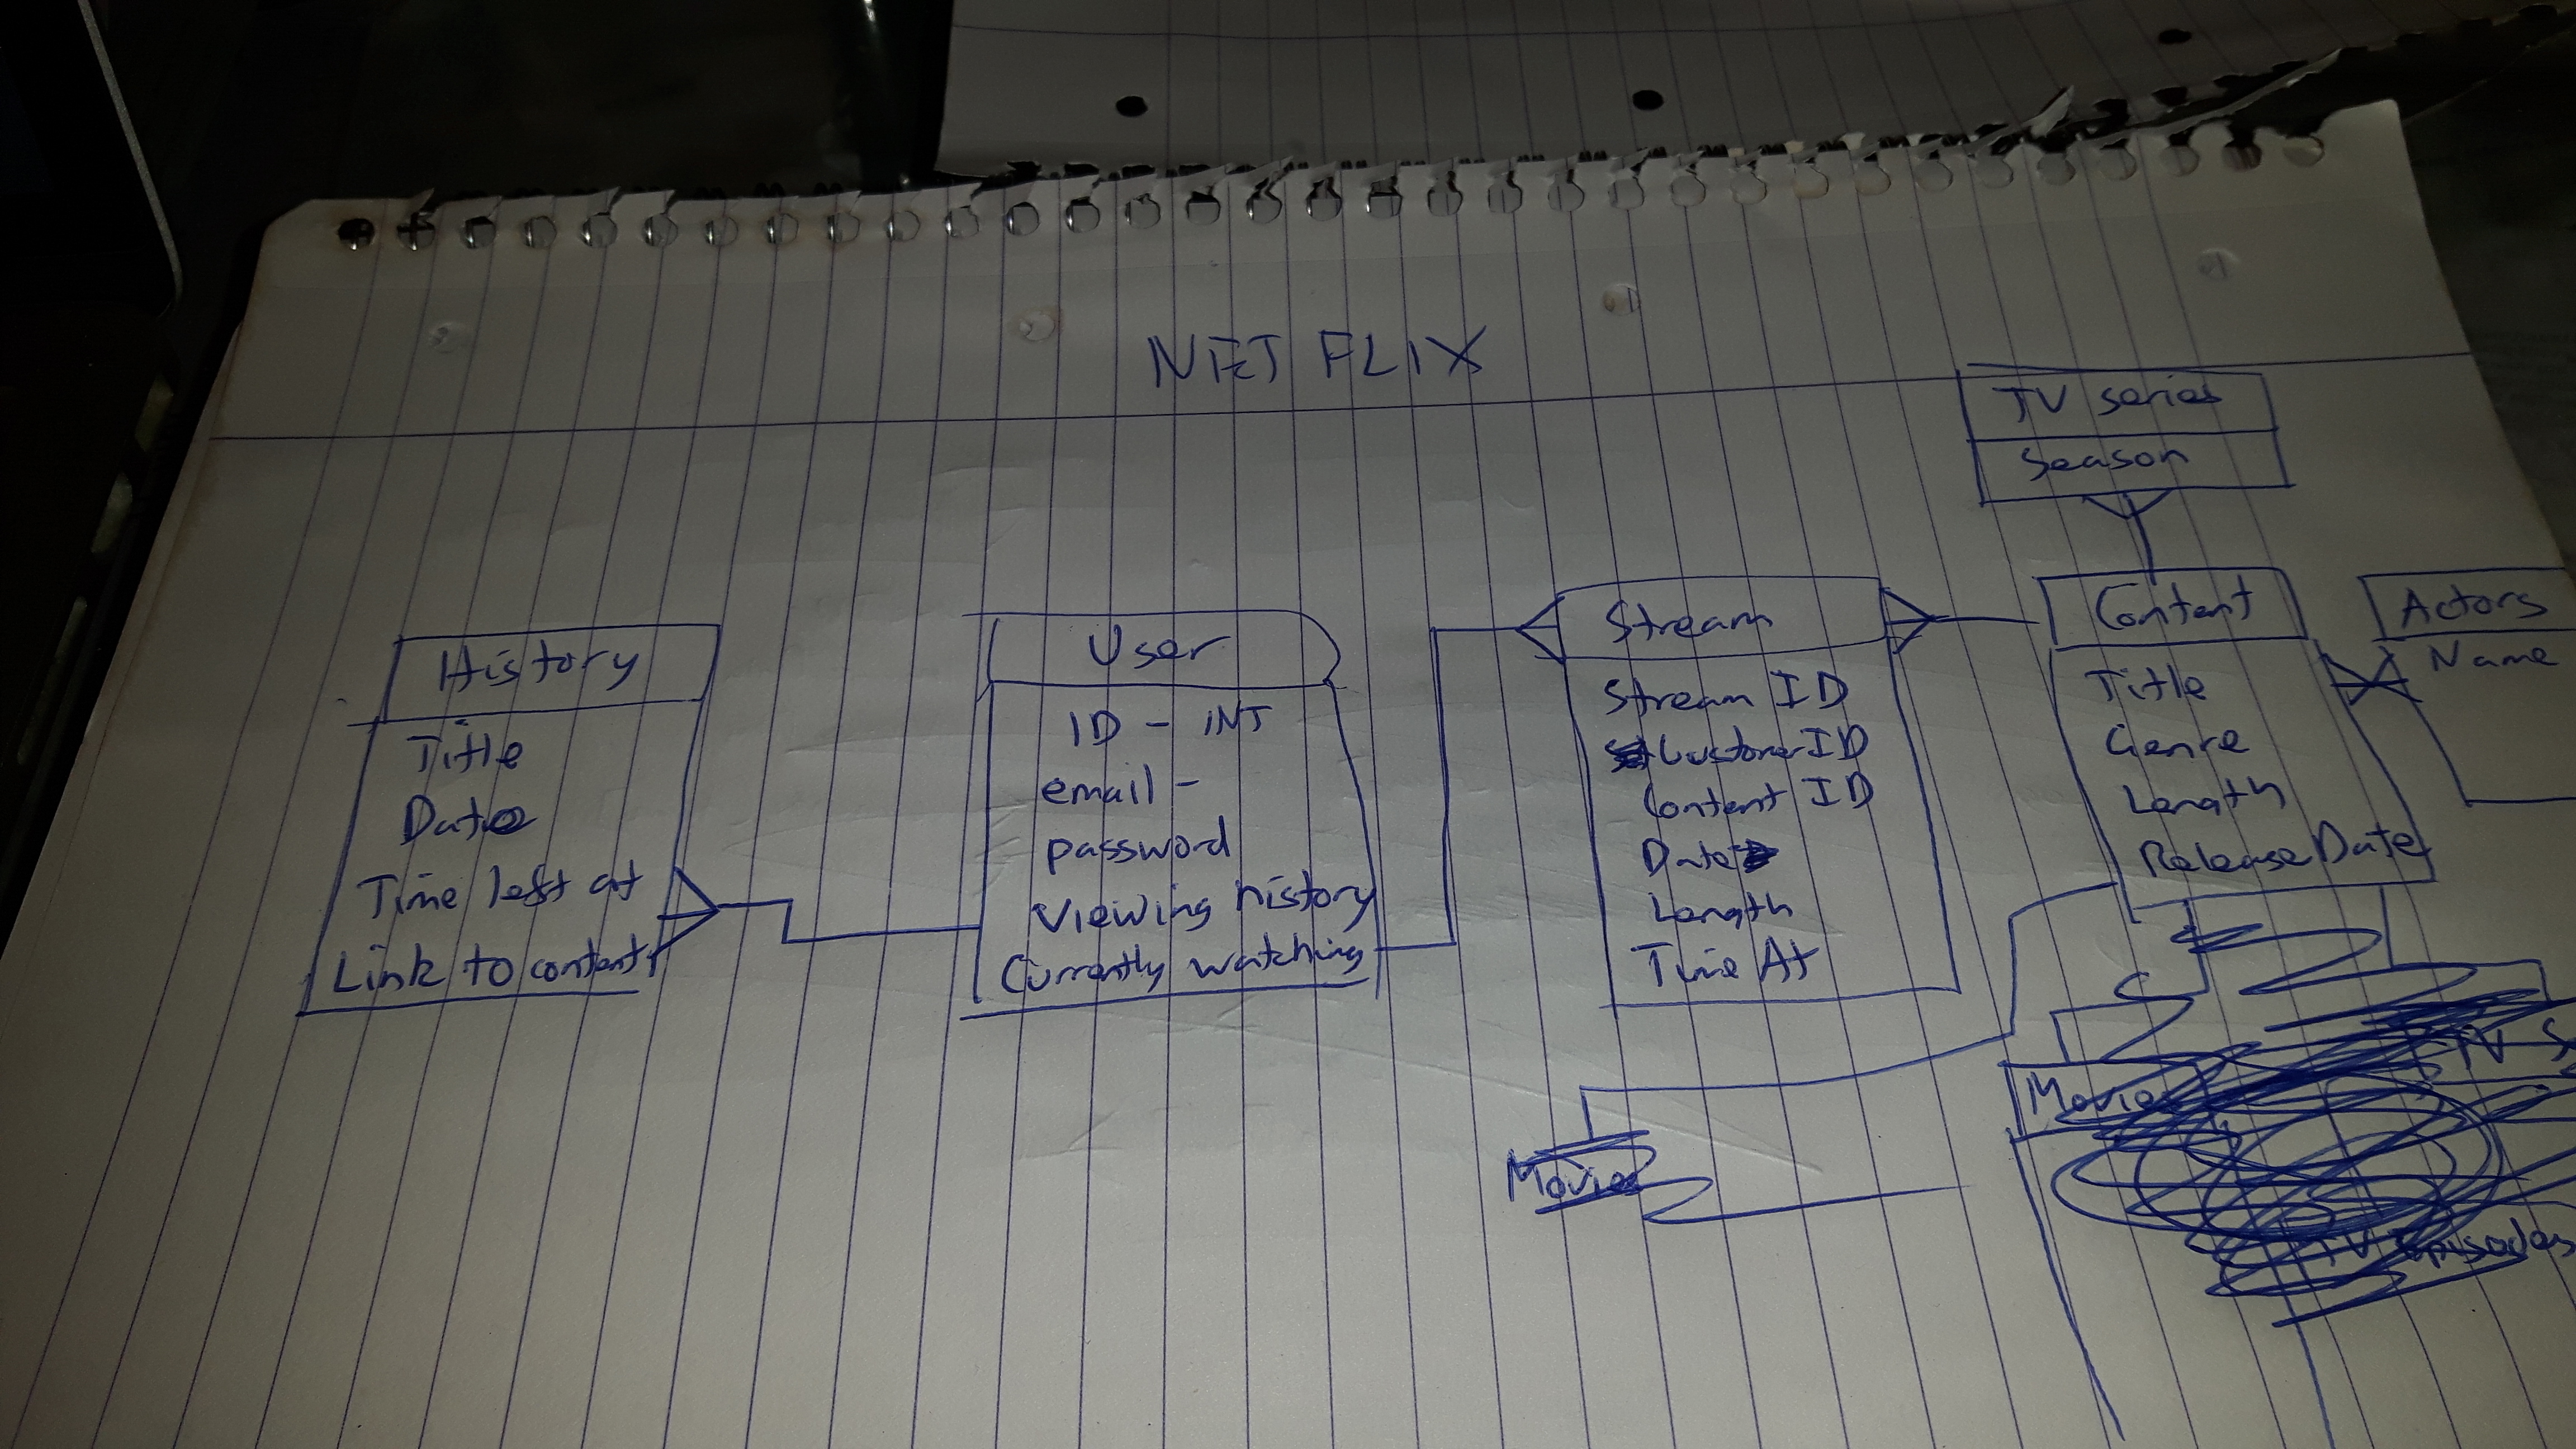 NETFLIX
TV series
Season
History
Title
Date
Time left at
Link to content
User
ID - INT
email -
password
Viewing history
Currently watching
Stream
Stream ID
CustomerID
Content ID
Date
Length
Time At
Content
Title
Genre
Length
Release Date
Actors
Name
Movie
Movie
TV S
TV Episodes